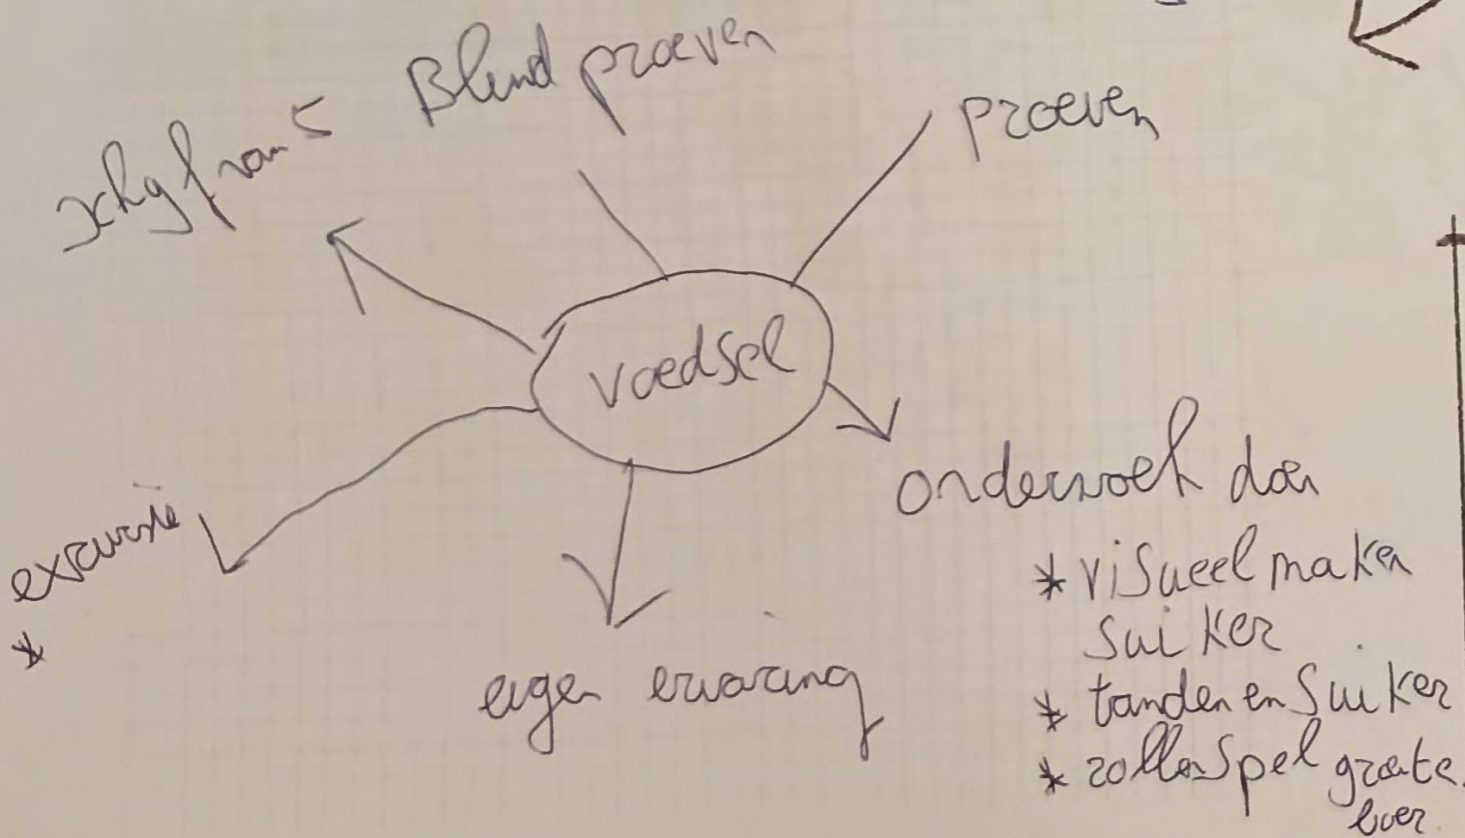 Blind proeven
proeven
schijf van 5
voedsel
onderzoek doen
* visueel maken
suiker
* tanden en suiker
* rollenspel groente
boer
excursie
*
eigen ervaring